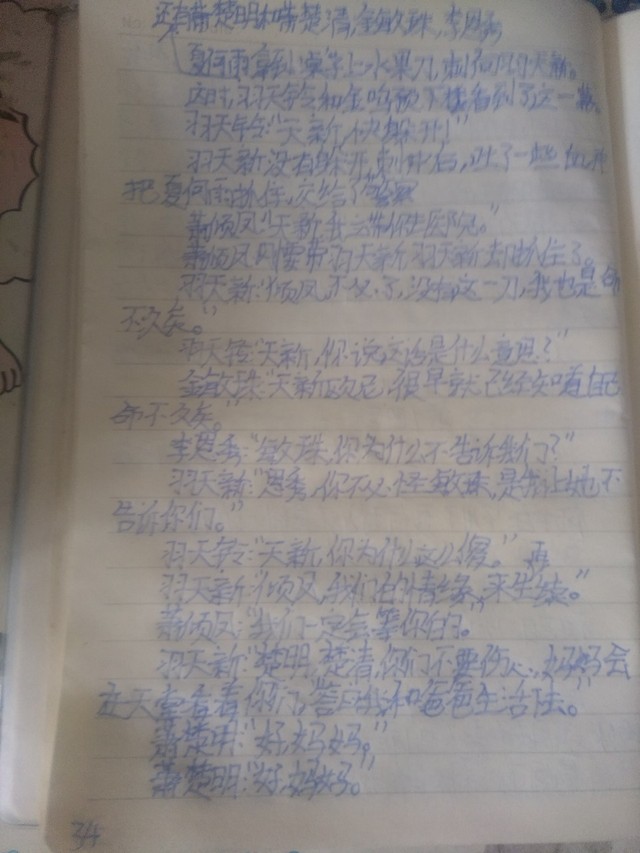 还有萧楚明和萧楚清,金敏珠,李恩秀
夏何雨拿到桌上水果刀,刺向羽天新。
这时,羽天铃和金 下楼看到了这一幕。
羽天铃:“天新,快躲开!”
羽天新没有躲开,刺中后,吐了一些血,
把夏何雨抓住,交给了警察
萧倾风:“天新,我立刻带你去医院。”
萧倾风刚要带羽天新,羽天新却抓住了。
羽天新:“倾风,不必了,没有这一刀,我也是命
不久矣。”
羽天铃:“天新,你说这话是什么意思?”
金敏珠:“天新欧尼,很早就已经知道自己
命不久矣。”
李恩秀:“敏珠,你为什么不告诉我们?”
羽天新:“恩秀,你不必怪敏珠,是我让她不
告诉你们。”
羽天铃:“天新,你为什么这么傻。” 再
羽天新:“倾风,我们的情缘,来生续。”
萧倾风:“我们一定会等你的。”
羽天新:“楚明,楚清,你们不要伤心,妈妈会
在天堂看着你们,答应我和爸爸生活下去。”
萧楚明:“好,妈妈。”
萧楚明:“好,妈妈。”
34